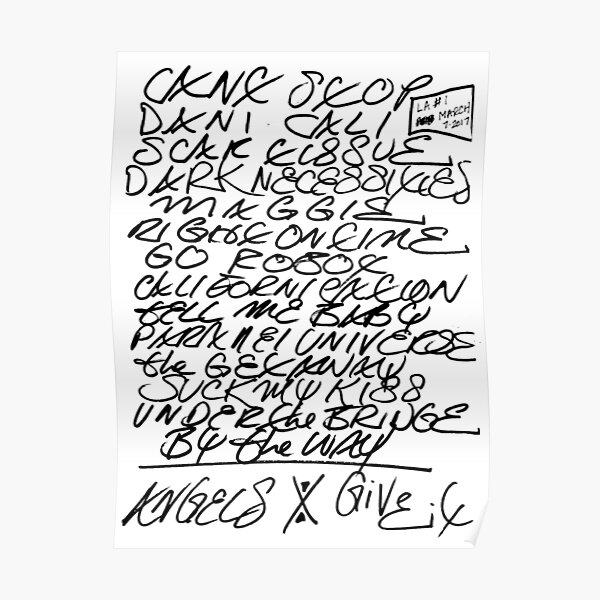 CANT STOP
LA #1
MARCH
7-2017
DANI CALI
SCAR TISSUE
DARK NECESSITIES
MAGGIE
RIGHT ON TIME
GO ROBOT
CALIFORNICATION
tELL ME BABY
PARALLEL UNIVERSE
the GETAWAY
SUCK MY KISS
UNDER the BRINGE
BY the WAY
ANGELS X GiVE it